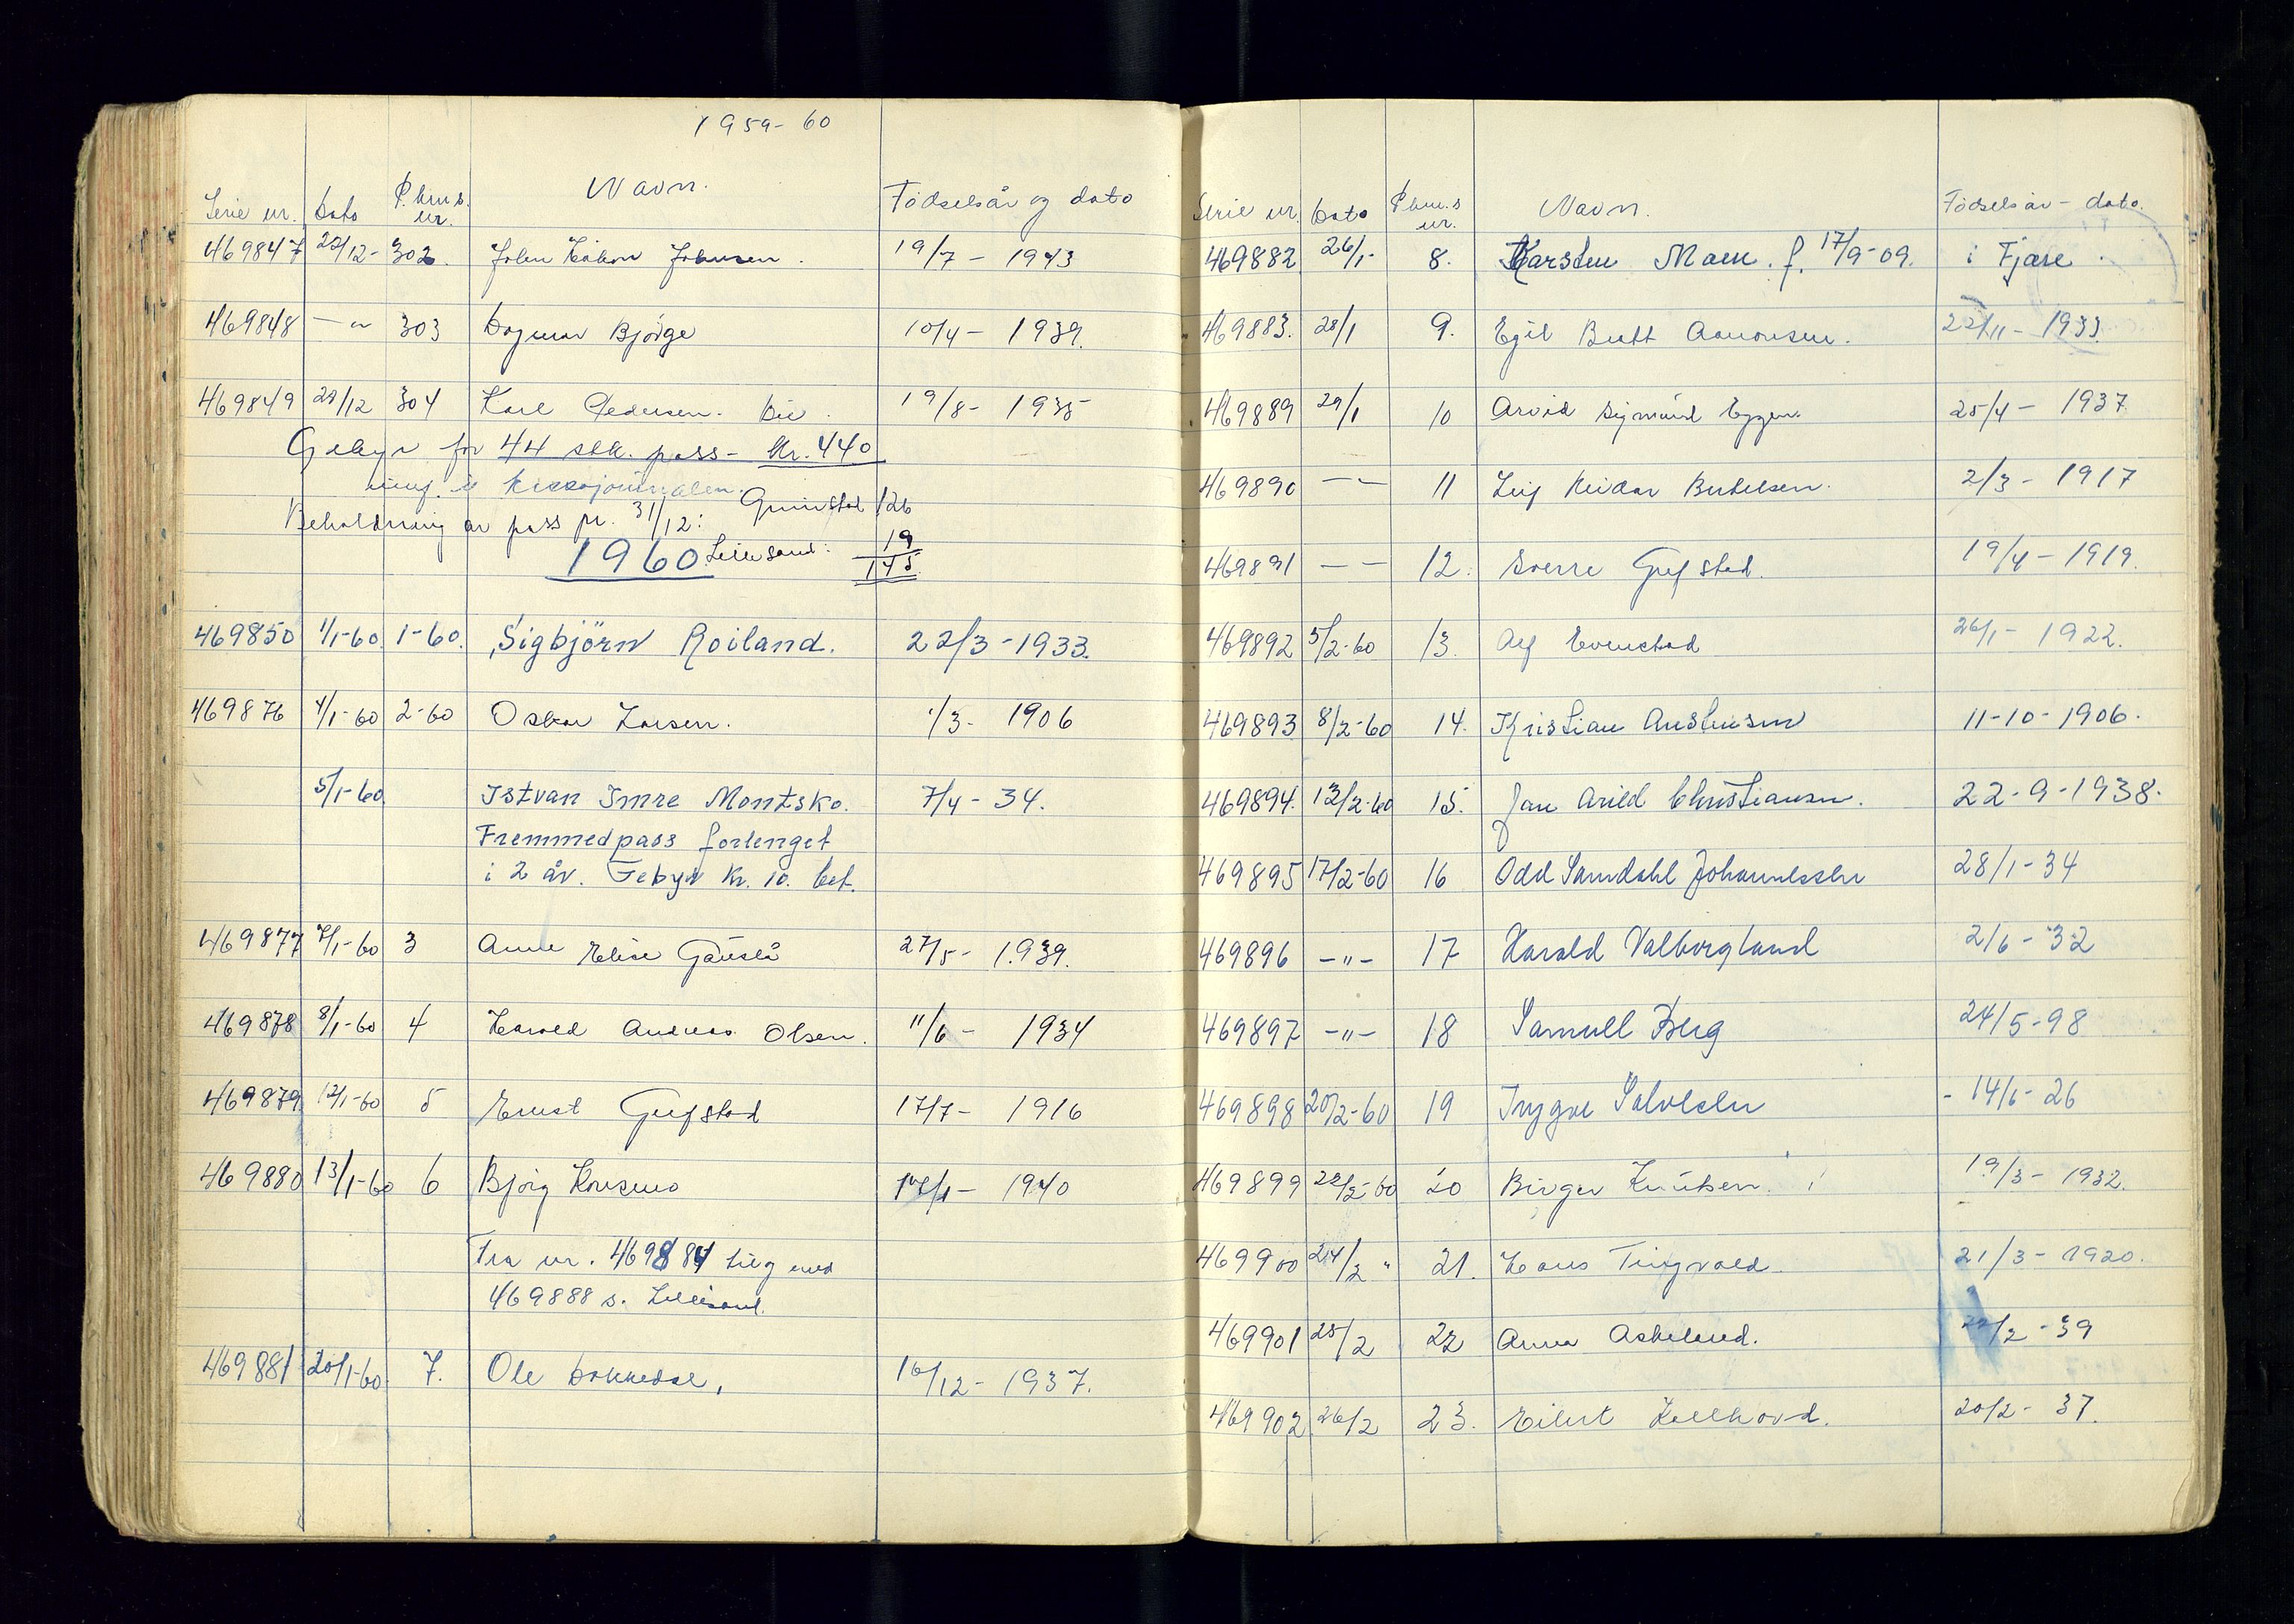 1959-60
Serie nr. Dato P.km.s. nr. Navn. Födselsår og dato
469847 22/12- 302. John Håkon Johnsen. 19/7 - 1943
469848 -"- 303 Dagmar Bjørge 10/4 - 1939.
469849 29/12 304 Karl Pedersen. 19/8 - 1935
Gebyr for 44 stk. pass - kr. 440
Kassajournalen.
Beholdning av pass pr. 31/12: Grimstad 126
1960 Lillesand: 19
145
469850 1/1-60. 1-60. Sigbjörn Roiland. 22/3-1933.
469876 4/1-60 2-60 Oskar Larsen. 1/3 - 1906
5/1-60 Istvan Imre Montsko. 7/4 - 34.
Fremmedpass forlenget
i 2 år. Gebyr kr. 10. bet.
469877 7/1-60 3 Anne Elise Gauslå 27/5 - 1939.
469878 8/1-60 4 Harald Andreas Olsen. 11/6 - 1934
469879 12/1-60 5 Ernst Grefstad 17/7 - 1916
469880 13/1-60 6 Bjørg - 1940
Fra nr. 469884 til og med
469888 s. Lillesand.
469881 20/1-60 7. Ole Dokkedal, 16/12 - 1937.
Serie nr. Dato P.km.s nr. Navn. Födselsår - dato.
469882 26/1- 8. Karsten Moen. f. 17/9-09. i Fjære.
469883. 28/1 9. Egil Aamonsen. 22/11 - 1933.
469889 29/1 10 Arvid Sigmund Eggen. 25/4 - 1937
469890 -"- 11 Leif Reidar Bertelsen. 2/3 - 1917
469891 -"- 12. Sverre Grefstad. 19/4 - 1919.
469892 5/2-60 13. Alf Evenstad 26/1 - 1922.
469893 8/2-60 14. Kristian Austensen 11-10-1906.
469894. 12/2-60 15. Jan Arild Christiansen. 22-9-1938.
469895 17/2-60 16 Odd Sandahl Johannessen 28/1-34
469896 -"- 17 Harald Valborgland 2/6-32
469897 -"- 18 Samuel Berg 24/5-98
469898 20/2-60 19 Trygve Salvesen - 14/6-26
469899 22/2-60 20 Birger Knutsen. 19/3 - 1932.
469900 24/2 " 21. Hans Tingvold. 21/3 - 1920.
469901 25/2 22 Anna Askeland. 22/2 - 39
469902 26/2 23. Eilert Lillehovd. 20/2 - 37.